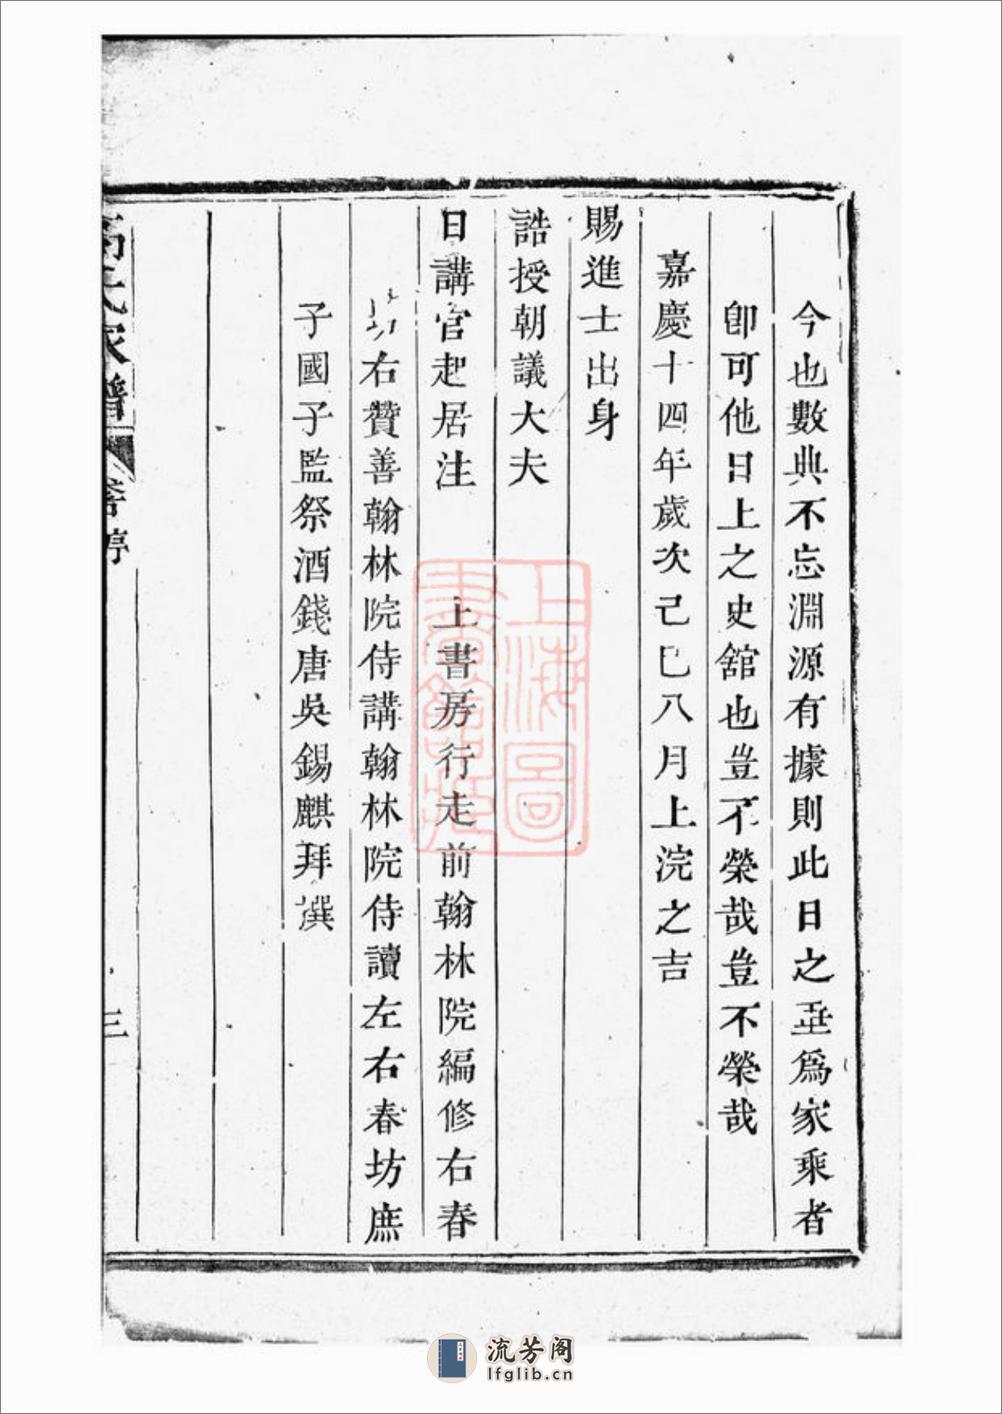 今也數典不忘淵源有據則此日之垂爲家乘者
卽可他日上之史舘也豈不榮哉豈不榮哉
嘉慶十四年歲次己巳八月上浣之吉
賜進士出身
誥授朝議大夫
日講官起居注 上書房行走前翰林院編修右春
坊右贊善翰林院侍講翰林院侍讀左右春坊庶
子國子監祭酒錢唐吳錫麒拜撰
高氏家譜
三
上海圖
書館藏
流芳阁
lfglib.cn